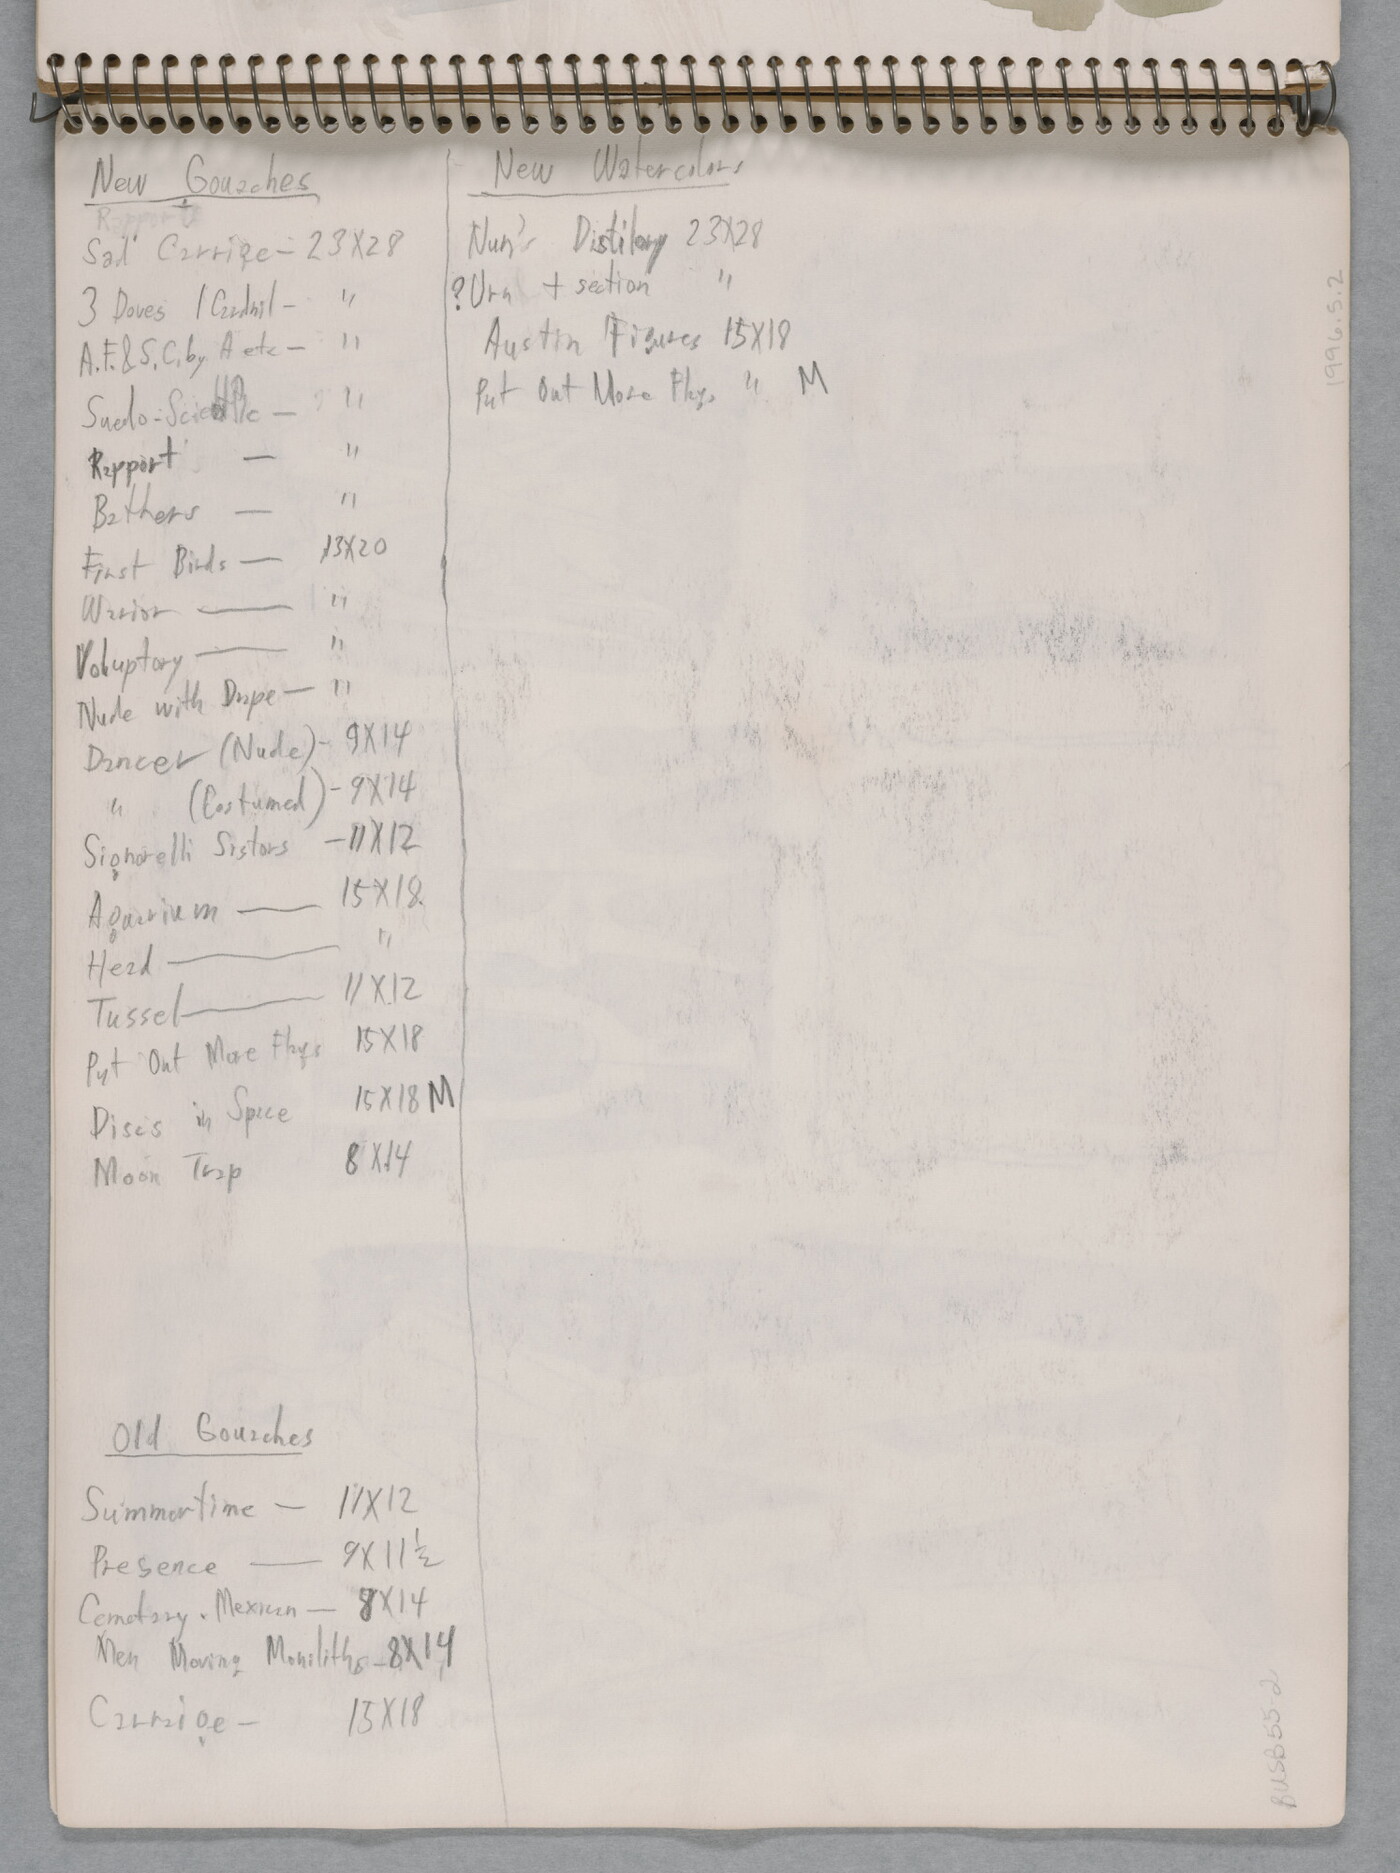 New Gouaches
Rapport
Sad Carrige - 23X28
3 Doves 1 Cardnil - "
A.F. & S.C. by A etc - "
Suedo-Scientific - "
Rapport - "
Bathers - "
First Birds - 13X20
Warior - "
Voluptory - "
Nude with Drape - "
Dancer (Nude) - 9X14
" (Costumed) - 9X14
Signorelli Sistors - 11X12
Aquarium - 15X18
Head - "
Tussel - 11X12
Put Out More Flags 15X18
Discs in Space 15X18 M
Moon Trap 8X14
Old Gouaches
Summertime - 11X12
Presence - 9X11½
Cemetary. Mexican - 8X14
Men Moving Moniliths - 8X14
Carraige - 15X18
New Watercolors
Nun's Distilery 23X28
? Urn + section "
Austin Figures 15X18
Put Out More Flags " M
1996.5.2
BUSB55-2